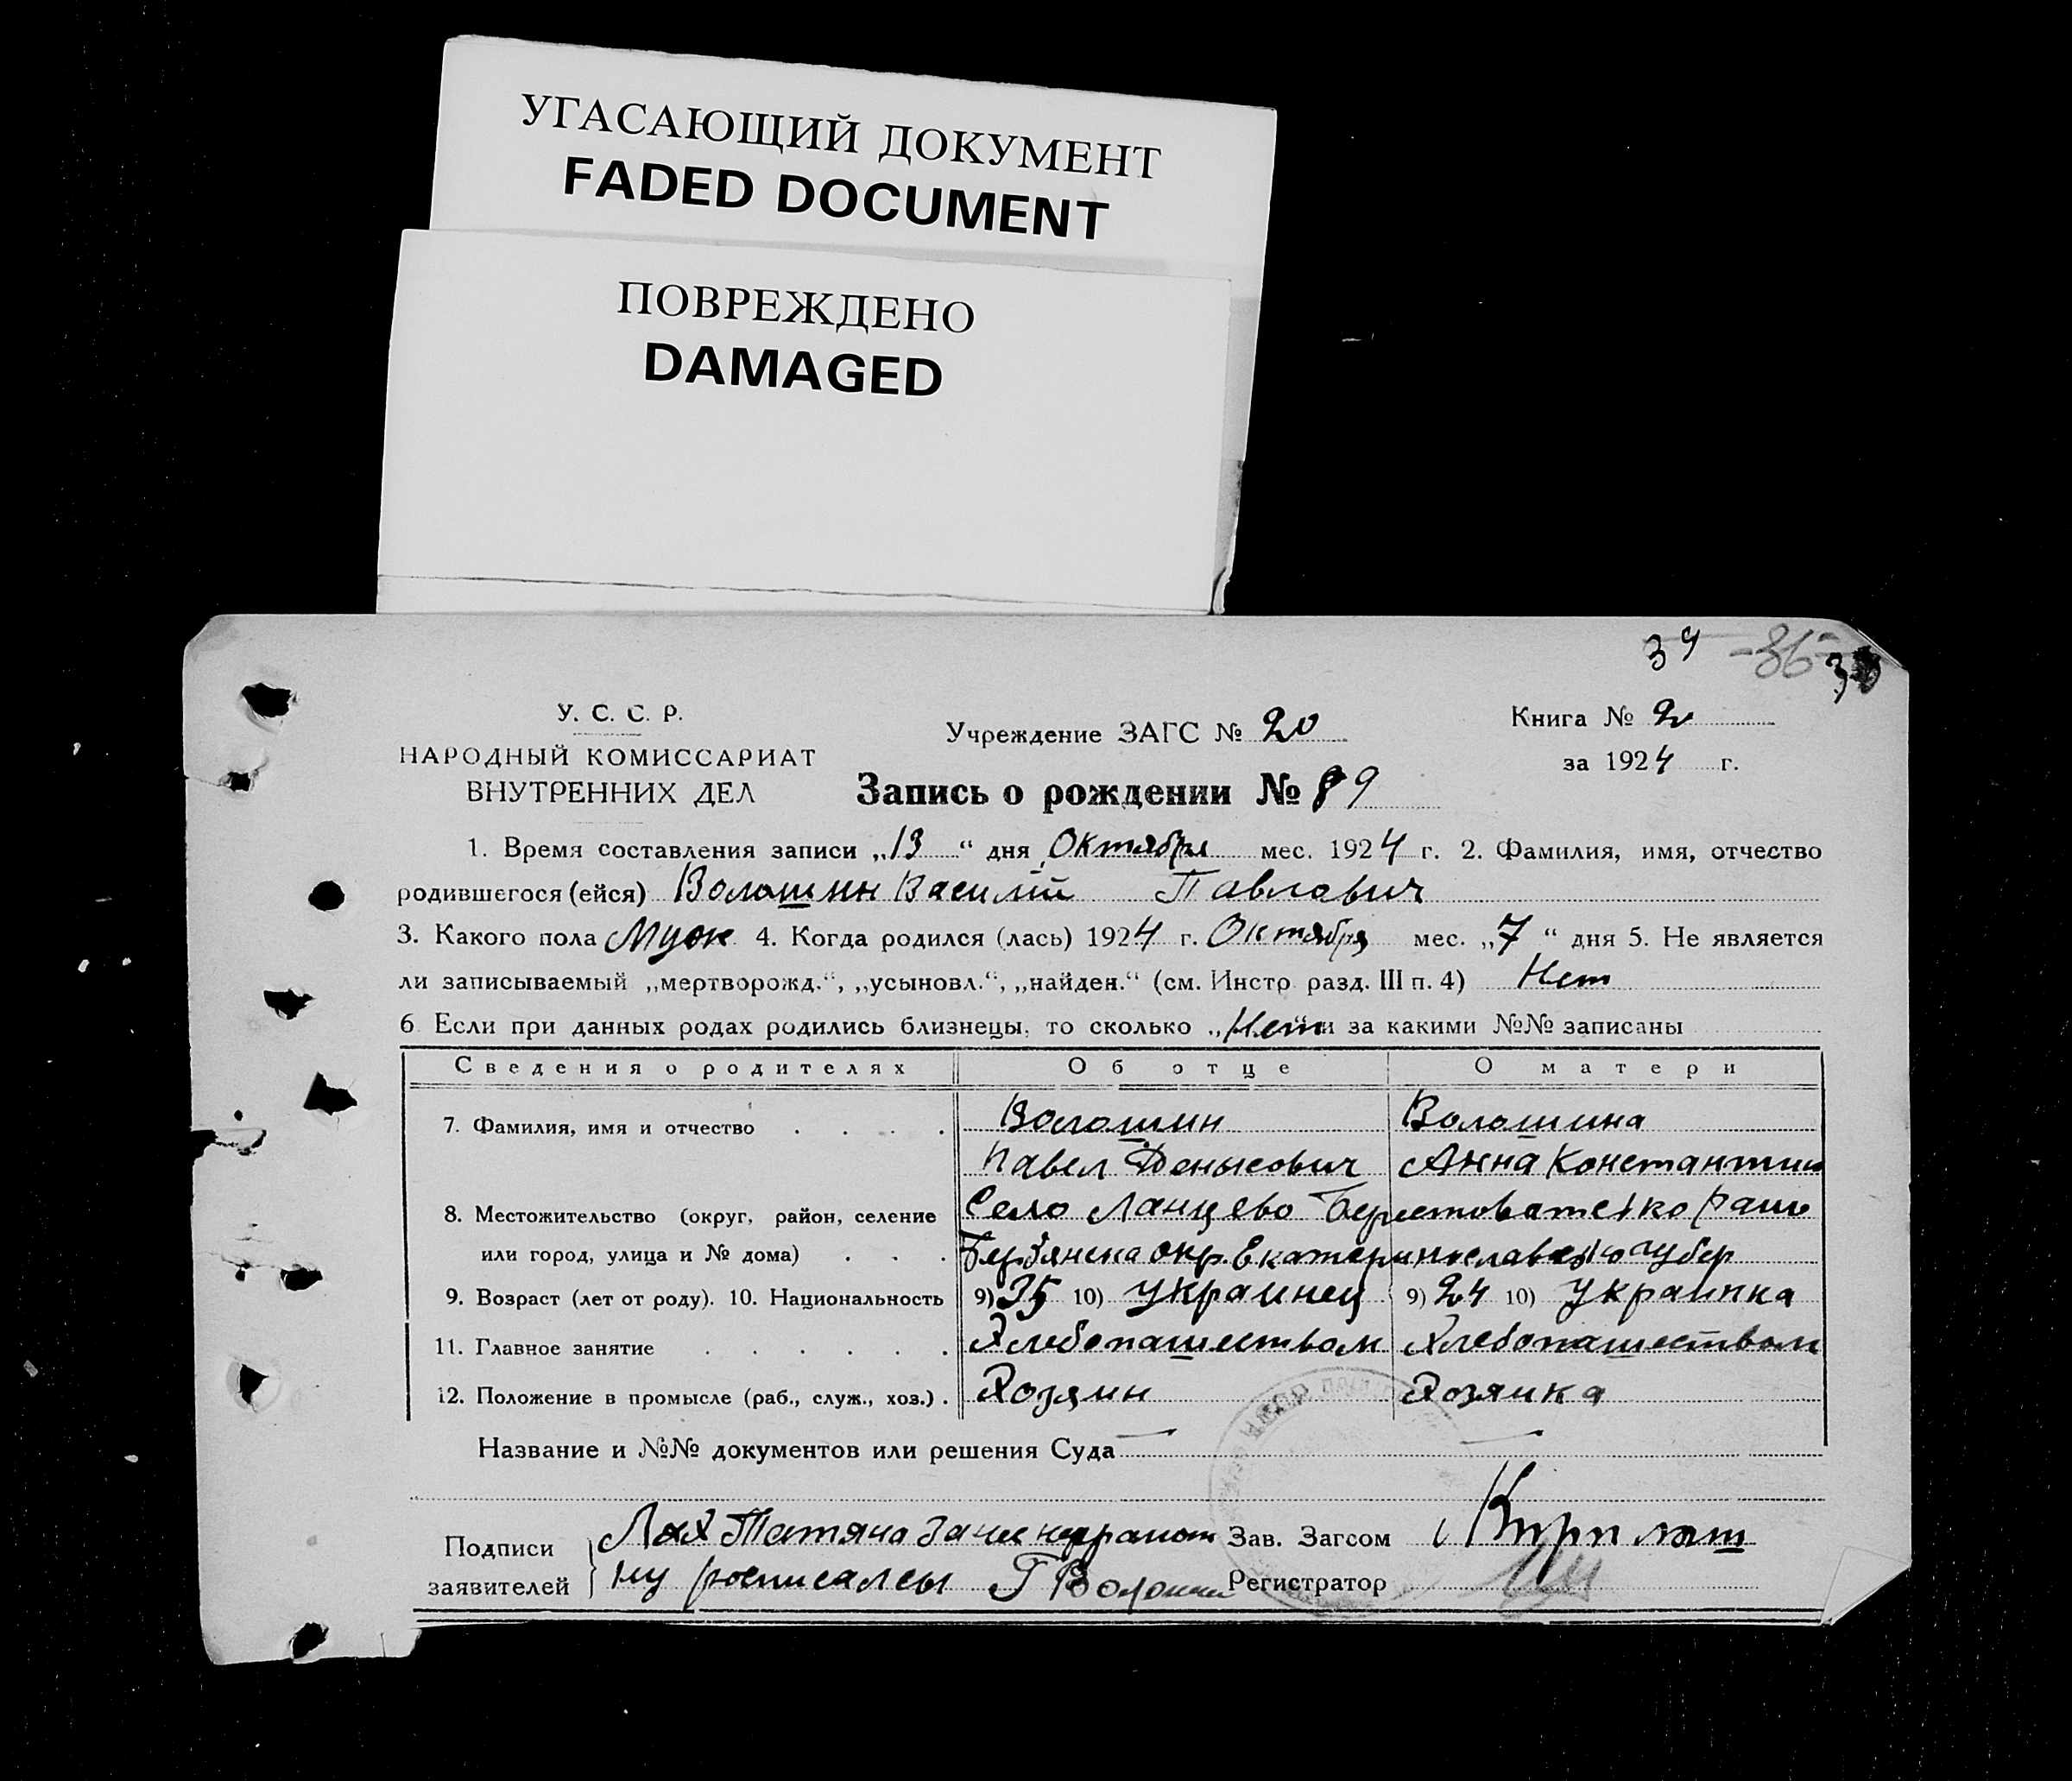 УГАСАЮЩИЙ ДОКУМЕНТ
FADED DOCUMENT
ПОВРЕЖДЕНО
DAMAGED
39 -36-
У. С. С. Р.
НАРОДНЫЙ КОМИССАРИАТ
ВНУТРЕННИХ ДЕЛ
Учреждение ЗАГС № 20
Книга № 2
за 1924 г.
Запись о рождении № 89
1. Время составления записи „13“ дня Октября мес. 1924 г. 2. Фамилия, имя, отчество
родившегося (ейся) Волошин Василий Павлович
3. Какого пола Муж 4. Когда родился (лась) 1924 г. Октября мес. „7“ дня 5. Не является
ли записываемый „мертворожд.“, „усыновл.“, „найден.“ (см. Инстр разд. III п. 4) Нет
6 Если при данных родах родились близнецы, то сколько „Нет“ и за какими №№ записаны
Сведения о родителях Об отце О матери
7. Фамилия, имя и отчество Волошин Волошина
Павел Денысович Анна Константин
8. Местожительство (округ, район, селение Село Ланцево
или город, улица и № дома) Бердянска окр. Екатеринославско губер
9. Возраст (лет от роду). 10. Национальность 9) 35 10) украинец 9) 24 10) украинка
11. Главное занятие Хлебопашеством Хлебопашеством
12. Положение в промысле (раб., служ., хоз.) Хозяин Хозяика
Название и №№ документов или решения Суда
Подписи Лях Татяна Зав. Загсом
заявителей ну росписалсы Г Волошин Регистратор